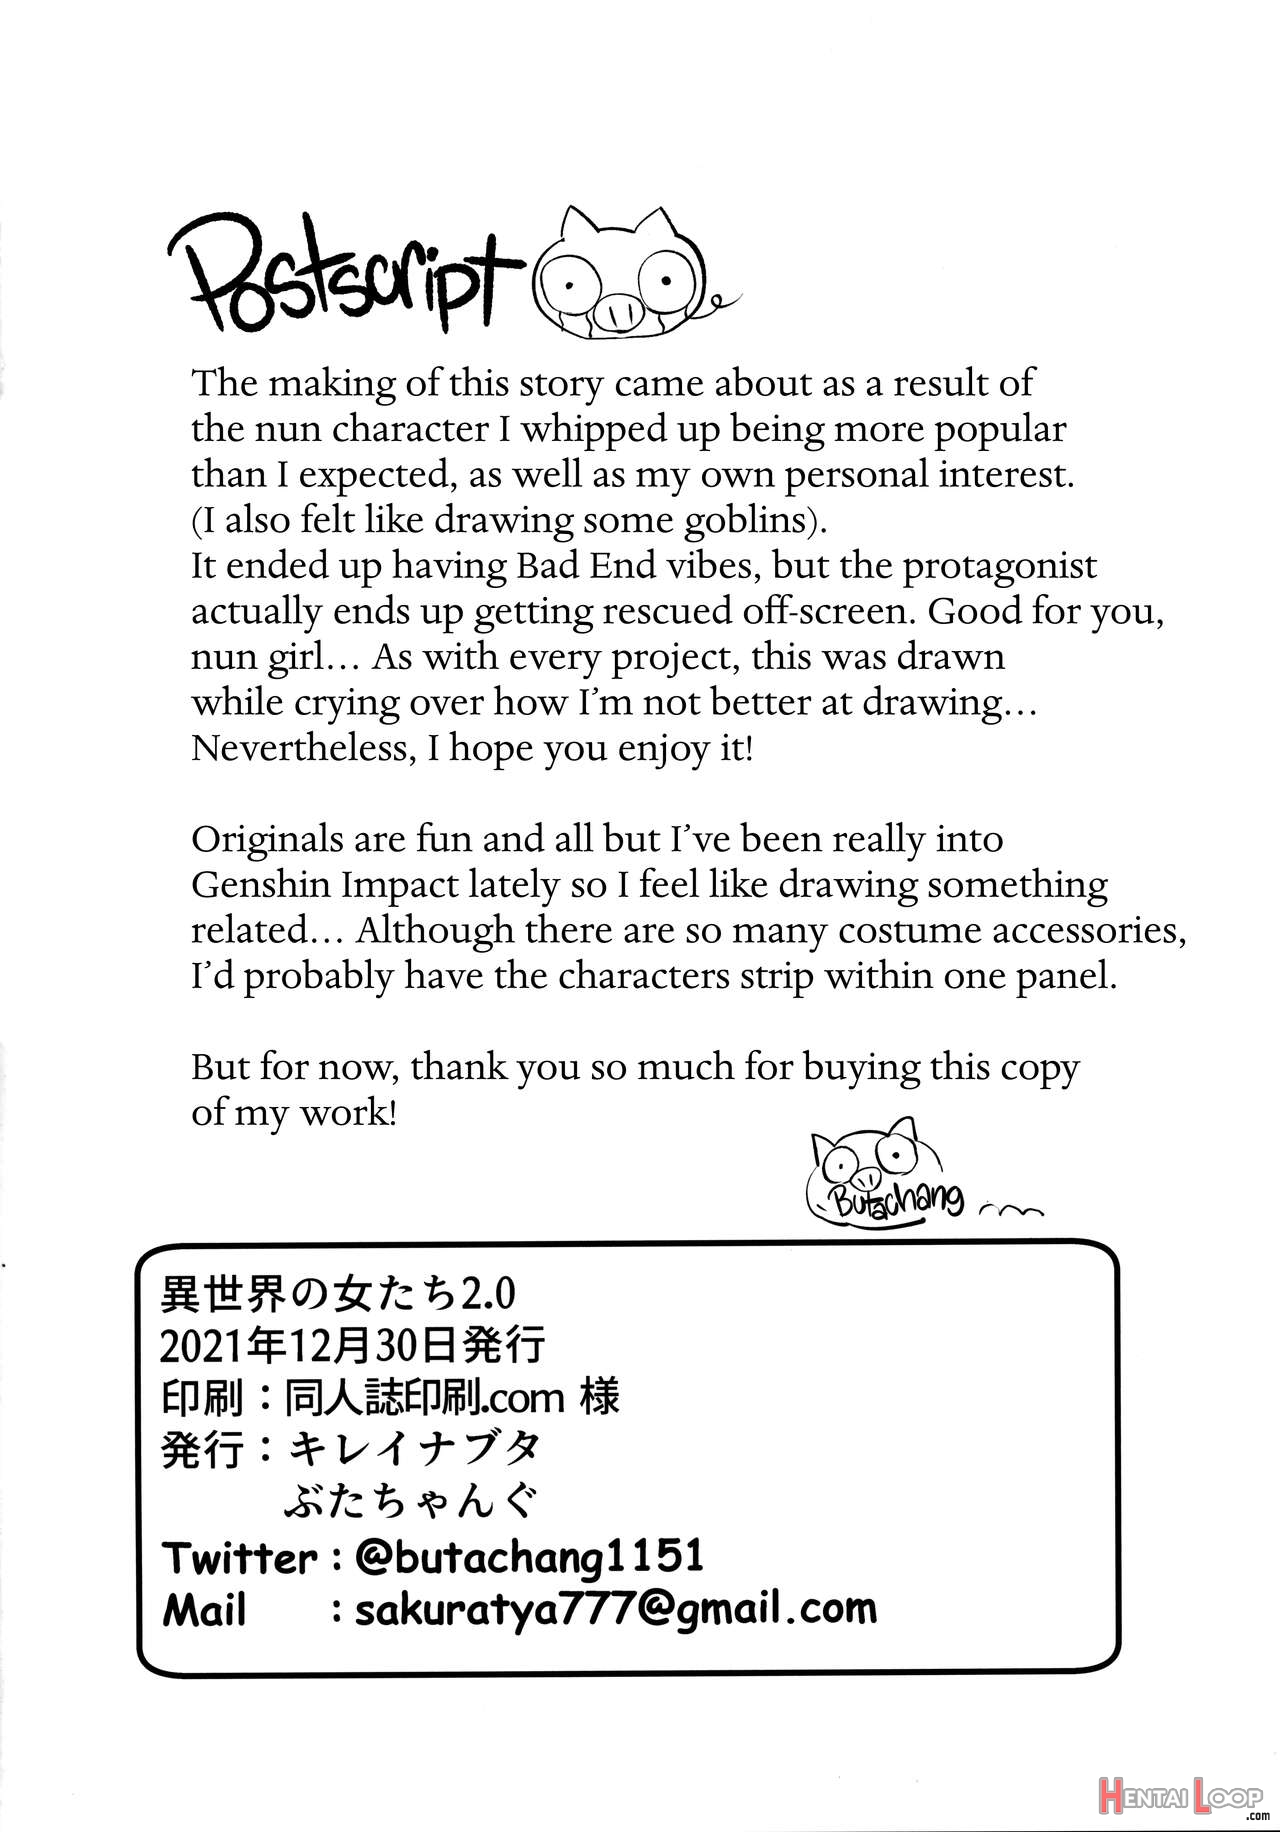 Postscript
The making of this story came about as a result of
the nun character I whipped up being more popular
than I expected, as well as my own personal interest.
(I also felt like drawing some goblins).
It ended up having Bad End vibes, but the protagonist
actually ends up getting rescued off-screen. Good for you,
nun girl... As with every project, this was drawn
while crying over how I'm not better at drawing...
Nevertheless, I hope you enjoy it!
Originals are fun and all but I've been really into
Genshin Impact lately so I feel like drawing something
related... Although there are so many costume accessories,
I'd probably have the characters strip within one panel.
But for now, thank you so much for buying this copy
of my work!
Butachang
異世界の女たち2.0
2021年12月30日発行
印刷：同人誌印刷.com 様
発行：キレイナブタ
ぶたちゃんぐ
Twitter : @butachang1151
Mail : sakuratya777@gmail.com
HENTAI LOOP
.com